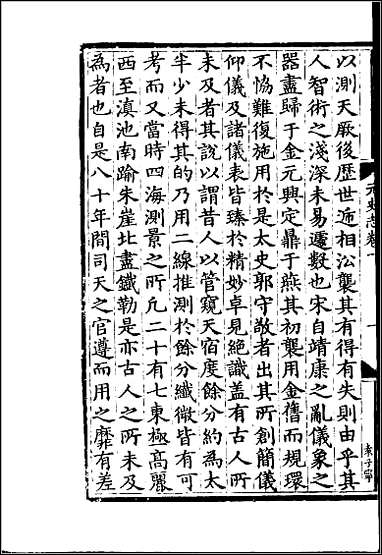 以測天厥後歷世遞相沿襲其有得有失則由乎其
人智術之淺深未易遽數也宋自靖康之亂儀象之
器盡歸于金元興定鼎于燕其初襲用金舊而規環
不恊難復施用於是太史郭守敬者出其所創簡儀
仰儀及諸儀表皆臻於精妙卓見絶識盖有古人所
未及者其說以謂昔人以管窺天宿度餘分約為太
半少未得其的乃用二線推測於餘分纖微皆有可
考而又當時四海測景之所凡二十有七東極高麗
西至滇池南踰朱崖北盡鐵勒是亦古人之所未及
為者也自是八十年間司天之官遵而用之靡有差
元史志卷一
一